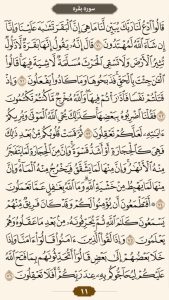 سوره بقره
قَالُوا۟ ٱدْعُ لَنَا رَبَّكَ يُبَيِّن لَّنَا مَا هِىَ إِنَّ ٱلْبَقَرَ تَشَـٰبَهَ عَلَيْنَا وَإِنَّآ
إِن شَآءَ ٱللَّهُ لَمُهْتَدُونَ ٧٠ قَالَ إِنَّهُۥ يَقُولُ إِنَّهَا بَقَرَةٌ لَّا ذَلُولٌ
تُثِيرُ ٱلْأَرْضَ وَلَا تَسْقِى ٱلْحَرْثَ مُسَلَّمَةٌ لَّا شِيَةَ فِيهَا قَالُوا۟
ٱلْـَٔـٰنَ جِئْتَ بِٱلْحَقِّ فَذَبَحُوهَا وَمَا كَادُوا۟ يَفْعَلُونَ ٧١ وَإِذْ
قَتَلْتُمْ نَفْسًا فَٱدَّٰرَْٰٔتُمْ فِيهَا وَٱللَّهُ مُخْرِجٌ مَّا كُنتُمْ تَكْتُمُونَ ٧٢
فَقُلْنَا ٱضْرِبُوهُ بِبَعْضِهَا كَذَٰلِكَ يُحْىِ ٱللَّهُ ٱلْمَوْتَىٰ وَيُرِيكُمْ
ءَايَـٰتِهِۦ لَعَلَّكُمْ تَعْقِلُونَ ٧٣ ثُمَّ قَسَتْ قُلُوبُكُم مِّنۢ بَعْدِ ذَٰلِكَ
فَهِىَ كَٱلْحِجَارَةِ أَوْ أَشَدُّ قَسْوَةً وَإِنَّ مِنَ ٱلْحِجَارَةِ لَمَا يَتَفَجَّرُ
مِنْهُ ٱلْأَنْهَـٰرُ وَإِنَّ مِنْهَا لَمَا يَشَّقَّقُ فَيَخْرُجُ مِنْهُ ٱلْمَآءُ وَإِنَّ
مِنْهَا لَمَا يَهْبِطُ مِنْ خَشْيَةِ ٱللَّهِ وَمَا ٱللَّهُ بِغَـٰفِلٍ عَمَّا تَعْمَلُونَ
٧٤ أَفَتَطْمَعُونَ أَن يُؤْمِنُوا۟ لَكُمْ وَقَدْ كَانَ فَرِيقٌ مِّنْهُمْ
يَسْمَعُونَ كَلَـٰمَ ٱللَّهِ ثُمَّ يُحَرِّفُونَهُۥ مِنۢ بَعْدِ مَا عَقَلُوهُ وَهُمْ
يَعْلَمُونَ ٧٥ وَإِذَا لَقُوا۟ ٱلَّذِينَ ءَامَنُوا۟ قَالُوٓا۟ ءَامَنَّا وَإِذَا
خَلَا بَعْضُهُمْ إِلَىٰ بَعْضٍ قَالُوٓا۟ أَتُحَدِّثُونَهُم بِمَا فَتَحَ ٱللَّهُ
عَلَيْكُمْ لِيُحَآجُّوكُم بِهِۦ عِندَ رَبِّكُمْ أَفَلَا تَعْقِلُونَ ٧٦
١١